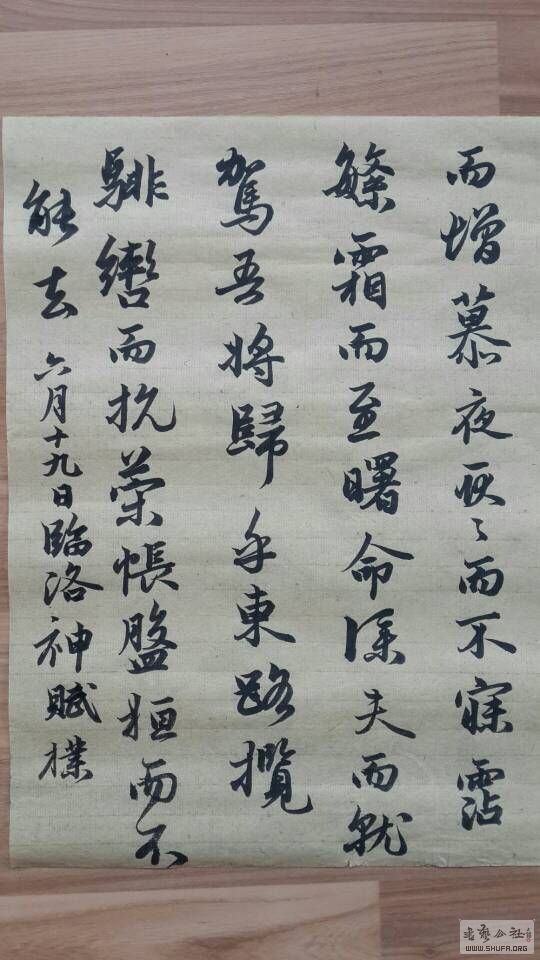 而增慕夜耿〻而不寐霑
繁霜而至曙命僕夫而就
駕吾將歸乎東路攬
騑轡而抗策悵盤桓而不
能去 六月十九日臨洛神賦
WWW.SHUFA.ORG